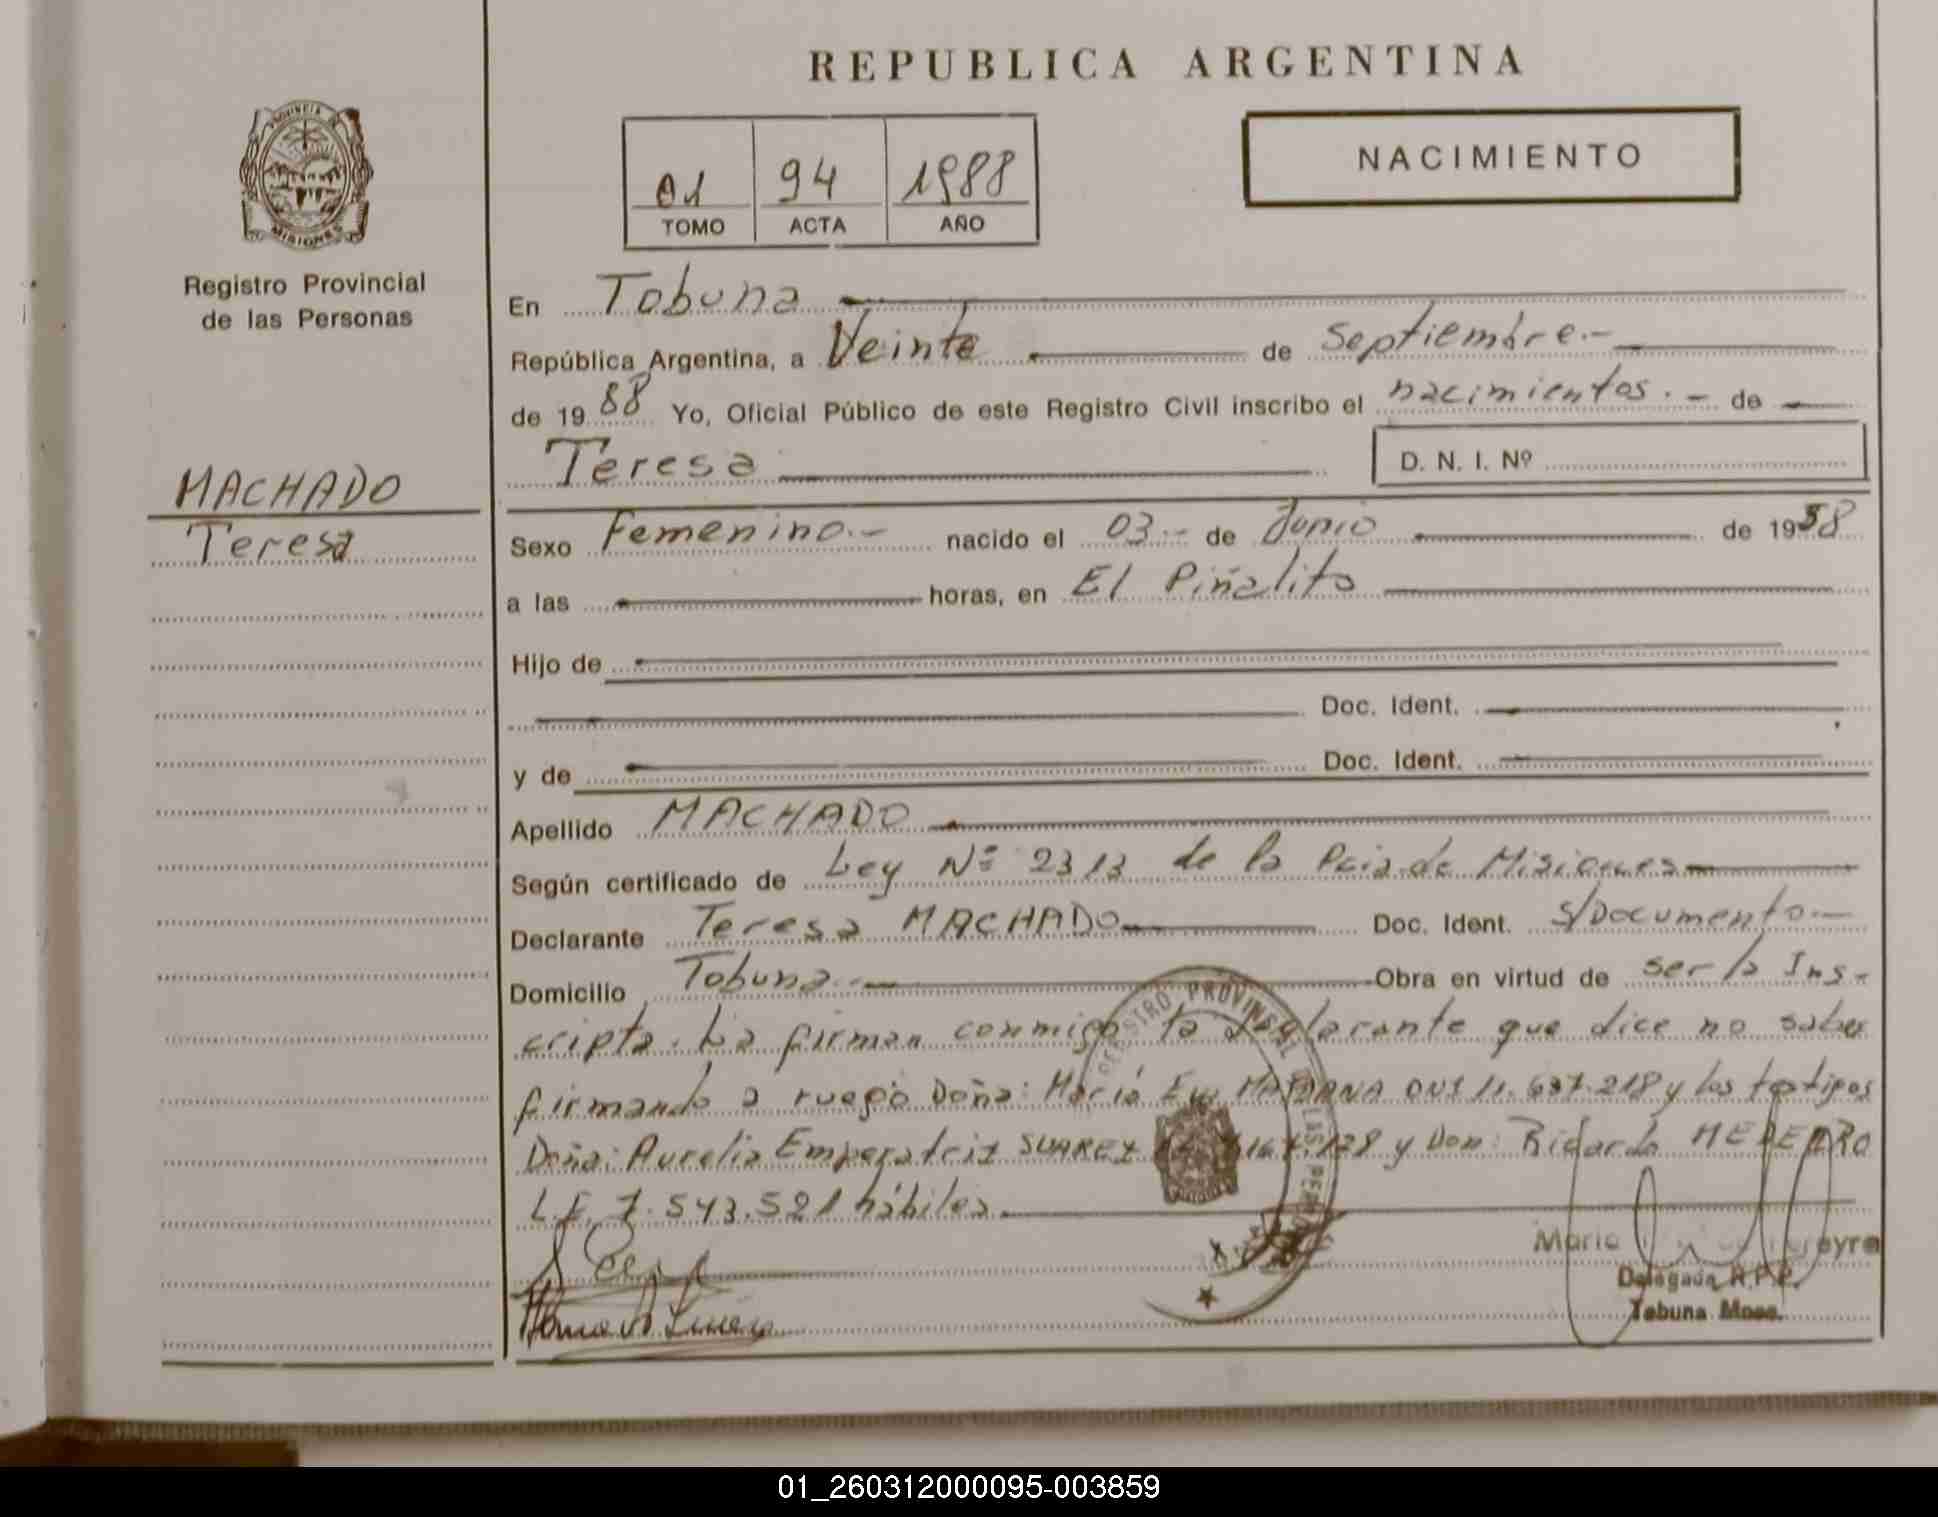 REPUBLICA ARGENTINA
PROVINCIA DE
MISIONES
Registro Provincial
de las Personas
01 94 1988
TOMO ACTA AÑO
NACIMIENTO
MACHADO
Teresa
En Tobuna
República Argentina, a Veinte de Septiembre.-
de 1988 Yo, Oficial Público de este Registro Civil inscribo el nacimientos.- de
Teresa D. N. I. Nº
Sexo Femenino.- nacido el 03.- de Junio de 1958
a las horas, en El Piñalito
Hijo de
Doc. Ident.
y de Doc. Ident.
Apellido MACHADO
Según certificado de Ley Nº 2313 de la Pcia de Misiones
Declarante Teresa MACHADO Doc. Ident. S/Documento.-
Domicilio Tobuna.- Obra en virtud de ser la Ins-
cripta. La firman conmigo la declarante que dice no saber
firmando a ruego Doña: María Eva DNI 11.637.218 y los testigos
Doña: Aurelia Emperatriz SUAREZ y Don: Ricardo
L.E. 7.543.521 hábiles.
REGISTRO PROVINCIAL DE LAS PERSONAS
Maria Pereyra
Delegada R.P.P.
Tobuna Mnes.
01_260312000095-003859